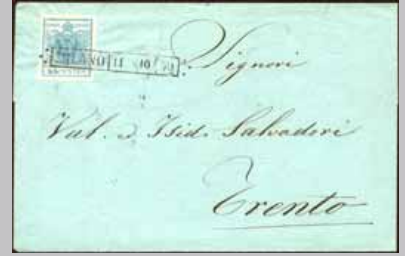 MILANO 11
Signori
Val. & Isid. Salvadori
Trento